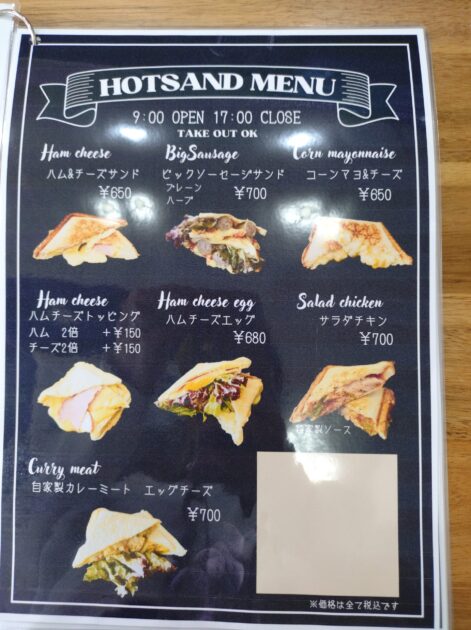 HOTSAND MENU
9:00 OPEN 17:00 CLOSE
TAKE OUT OK
Ham cheese
ハム&チーズサンド
¥650
BigSausage
ビックソーセージサンド
プレーン
ハーブ
¥700
Corn mayonnaise
コーンマヨ&チーズ
¥650
Ham cheese
ハムチーズトッピング
ハム 2倍 +¥150
チーズ2倍 +¥150
Ham cheese egg
ハムチーズエッグ
¥680
Salad chicken
サラダチキン
¥700
自家製ソース
Curry meat
自家製カレーミート エッグチーズ
¥700
※価格は全て税込です